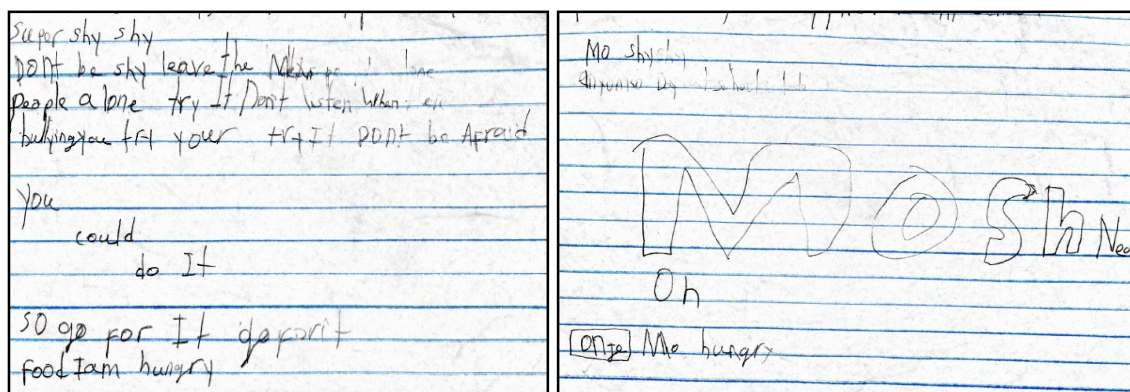 Super shy shy
DOnt be shy leave the
people alone try It Dont listen when
bullying you try your try It DOnt be Afraid
you
could
do It
so go for It
Food I am hungry
Mo shy shy
Mosh Neo
Oh
Mo hungry